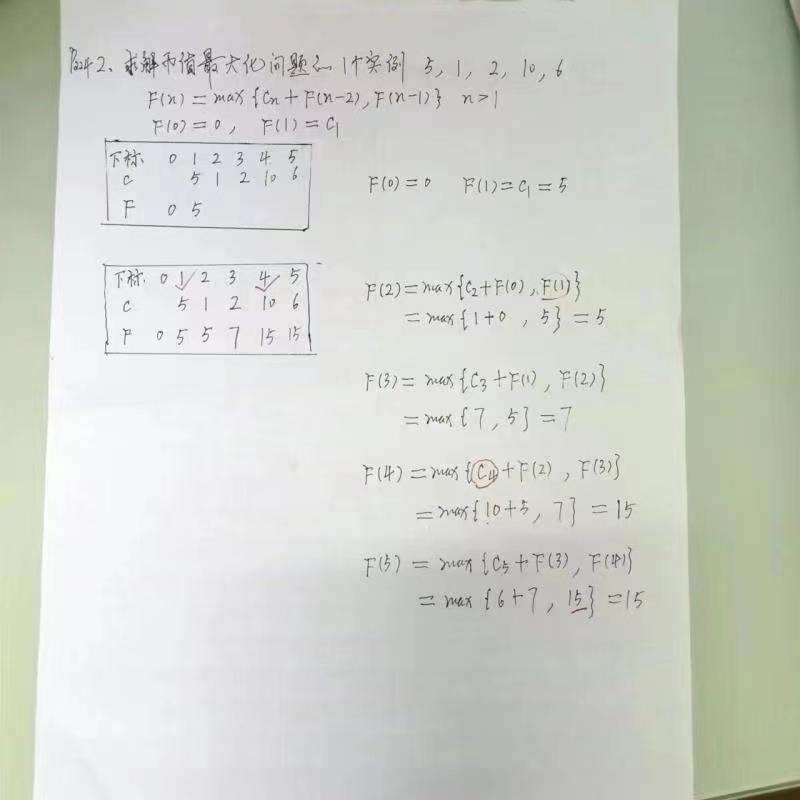 2、求解币值最大化问题的1个实例 5, 1, 2, 10, 6
F(n) = max{Cn + F(n-2), F(n-1)} n>1
F(0) = 0, F(1) = C1
下标 0 1 2 3 4 5
C 5 1 2 10 6
F 0 5
F(0) = 0 F(1) = C1 = 5
下标 0 1 2 3 4 5
C 5 1 2 10 6
F 0 5 5 7 15 15
F(2) = max{C2 + F(0), F(1)}
= max{1+0, 5} = 5
F(3) = max{C3 + F(1), F(2)}
= max{7, 5} = 7
F(4) = max{C4 + F(2), F(3)}
= max{10+5, 7} = 15
F(5) = max{C5 + F(3), F(4)}
= max{6+7, 15} = 15